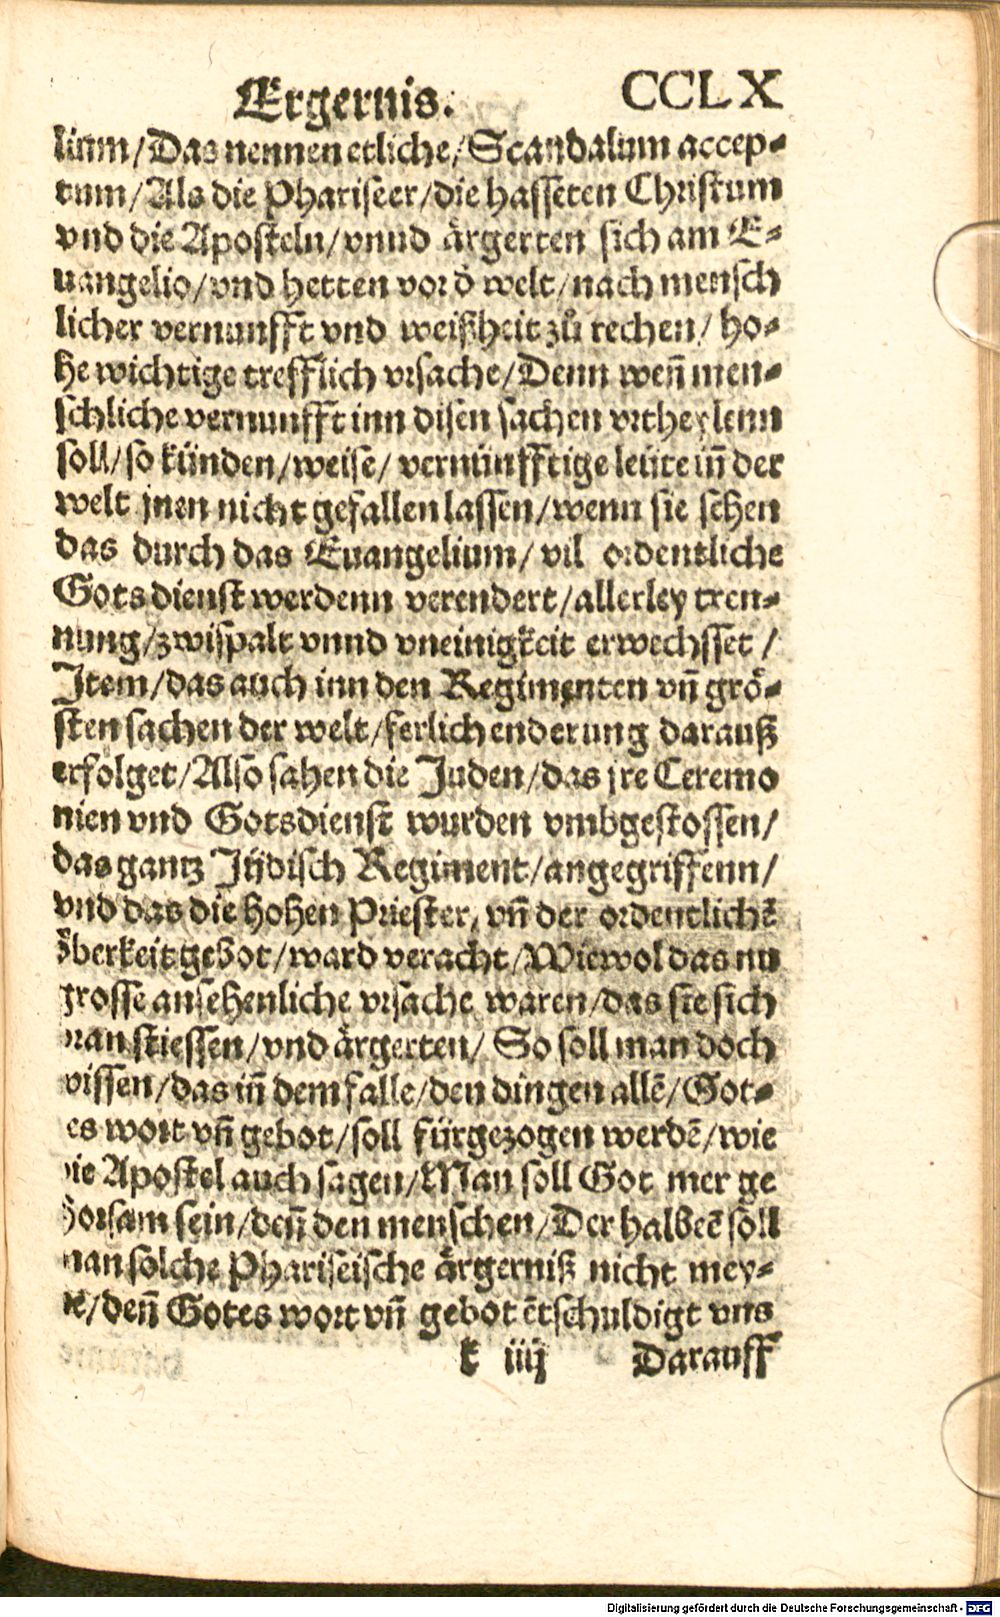 Ergernis. CCLX
lium/Das nennen etliche/Scandalum accep-
tum/Als die Phariseer/die hasseten Christum
vnd die Aposteln/vnnd ärgerten sich am E-
uangelio/vnd hetten vor d̄ welt/nach mensch
licher vernunfft vnd weißheit zů rechen/ ho-
he wichtige trefflich vrsache/Denn weñ men-
schliche vernunfft inn disen sachen vrtheylenn
soll/so künden/weise/ vernünfftige leüte iñ der
welt jnen nicht gefallen lassen/wenn sie sehen
das durch das Euangelium/ vil ordentliche
Gots dienst werdenn verendert/allerley tren-
nung/zwispalt vnnd vneinigkeit erwechsset/
Item/das auch inn den Regimenten vñ grö-
sten sachen der welt/ferlich enderung darauß
erfolget/Also sahen die Juden/das jre Ceremo
nien vnd Gotsdienst wurden vmbgestossen/
das gantz Jüdisch Regiment/angegriffenn/
vnd das die hohen Priester, vñ der ordentlichē
öberkeit gebot/ward veracht/Wiewol das nu
grosse ansehenliche vrsache waren/das sie sich
ran stiessen/vnd ärgerten/ So soll man doch
wissen/das iñ dem falle/den dingen allē/Got-
es wort vñ gebot/soll fürgezogen werdē/wie
die Apostel auch sagen/Man soll Got mer ge
horsam sein/deñ den menschen/Der halbeē soll
man solche Phariseische ärgerniß nicht mey-
de/deñ Gotes wort vñ gebot ētschuldigt vns
k iiij Darauff
Digitalisierung gefördert durch die Deutsche Forschungsgemeinschaft - DFG